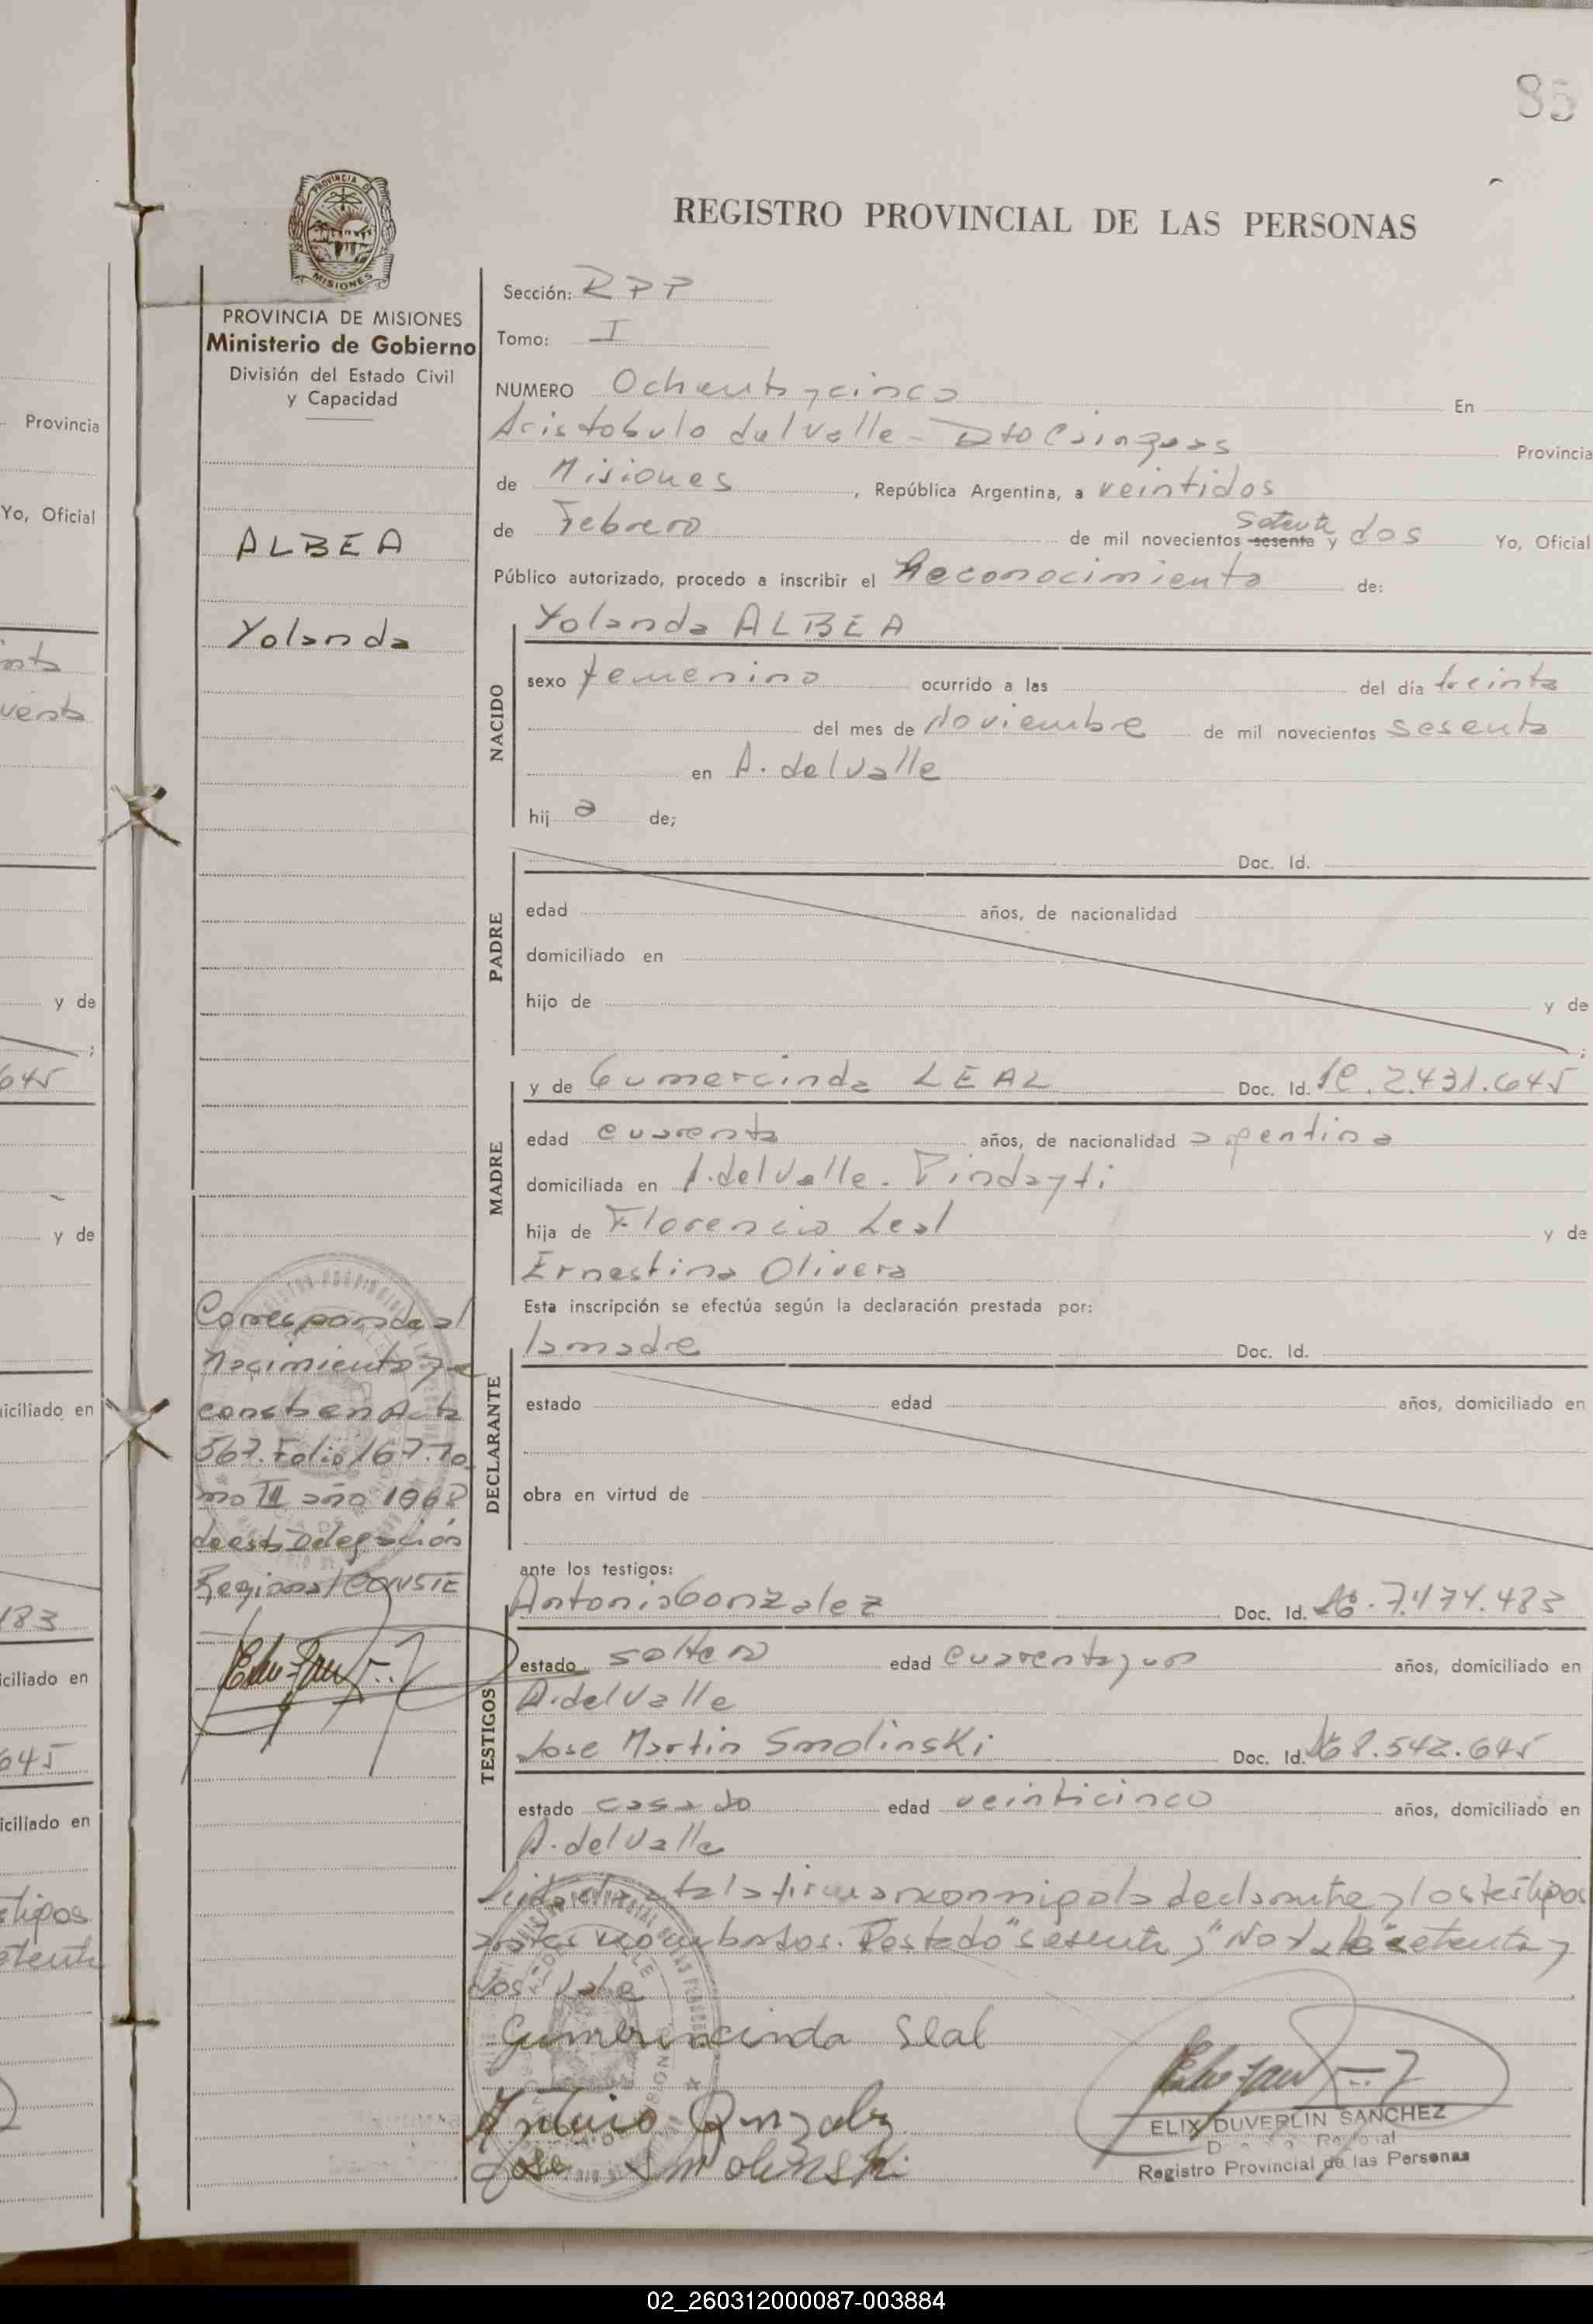 85
REGISTRO PROVINCIAL DE LAS PERSONAS
PROVINCIA DE MISIONES
PROVINCIA DE MISIONES
Ministerio de Gobierno
División del Estado Civil
y Capacidad
ALBEA
Yolanda
Corresponde al
Nacimiento que
consta en Acta
567. Folio 167. To
mo III año 1968
de esta Delegación
Regional CONSTE
Sección: RPP
Tomo: I
NUMERO Ochenta y cinco En
Aristobulo del Valle - Dto Cainguas Provincia
de Misiones, República Argentina, a veintidos
de Febrero de mil novecientos sesenta setenta y dos Yo, Oficial
Público autorizado, procedo a inscribir el Reconocimiento de:
NACIDO
Yolanda ALBEA
sexo femenino ocurrido a las del día treinta
del mes de Noviembre de mil novecientos sesenta
en A. del Valle
hij a de;
PADRE
Doc. Id.
edad años, de nacionalidad
domiciliado en
hijo de y de
;
MADRE
y de Gumercinda LEAL Doc. Id. 2.431.645
edad cuarenta años, de nacionalidad argentina
domiciliada en A. del Valle - Pindayti
hija de Florencio Leal y de
Ernestina Olivera
Esta inscripción se efectúa según la declaración prestada por:
DECLARANTE
la madre Doc. Id.
estado edad años, domiciliado en
obra en virtud de
ante los testigos:
TESTIGOS
Antonio Gonzalez Doc. Id. 7.474.483
estado soltero edad cuarenta y un años, domiciliado en
A. del Valle
Jose Martin Smolinski Doc. Id. 8.542.645
estado casado edad veinticinco años, domiciliado en
A. del Valle
Leida el acta la firman conmigo la declarante y los testigos
antes nombrados. Testado "sesenta y" No vale "setenta y
dos" Vale
Gumerincinda Leal
Antonio Gonzalez
Jose Smolinski
ELIX DUVERLIN SANCHEZ
Registro Provincial de las Personas
Provincia
Yo, Oficial
y de
645
y de
iciliado en
183
iciliado en
645
iciliado en
02_260312000087-003884